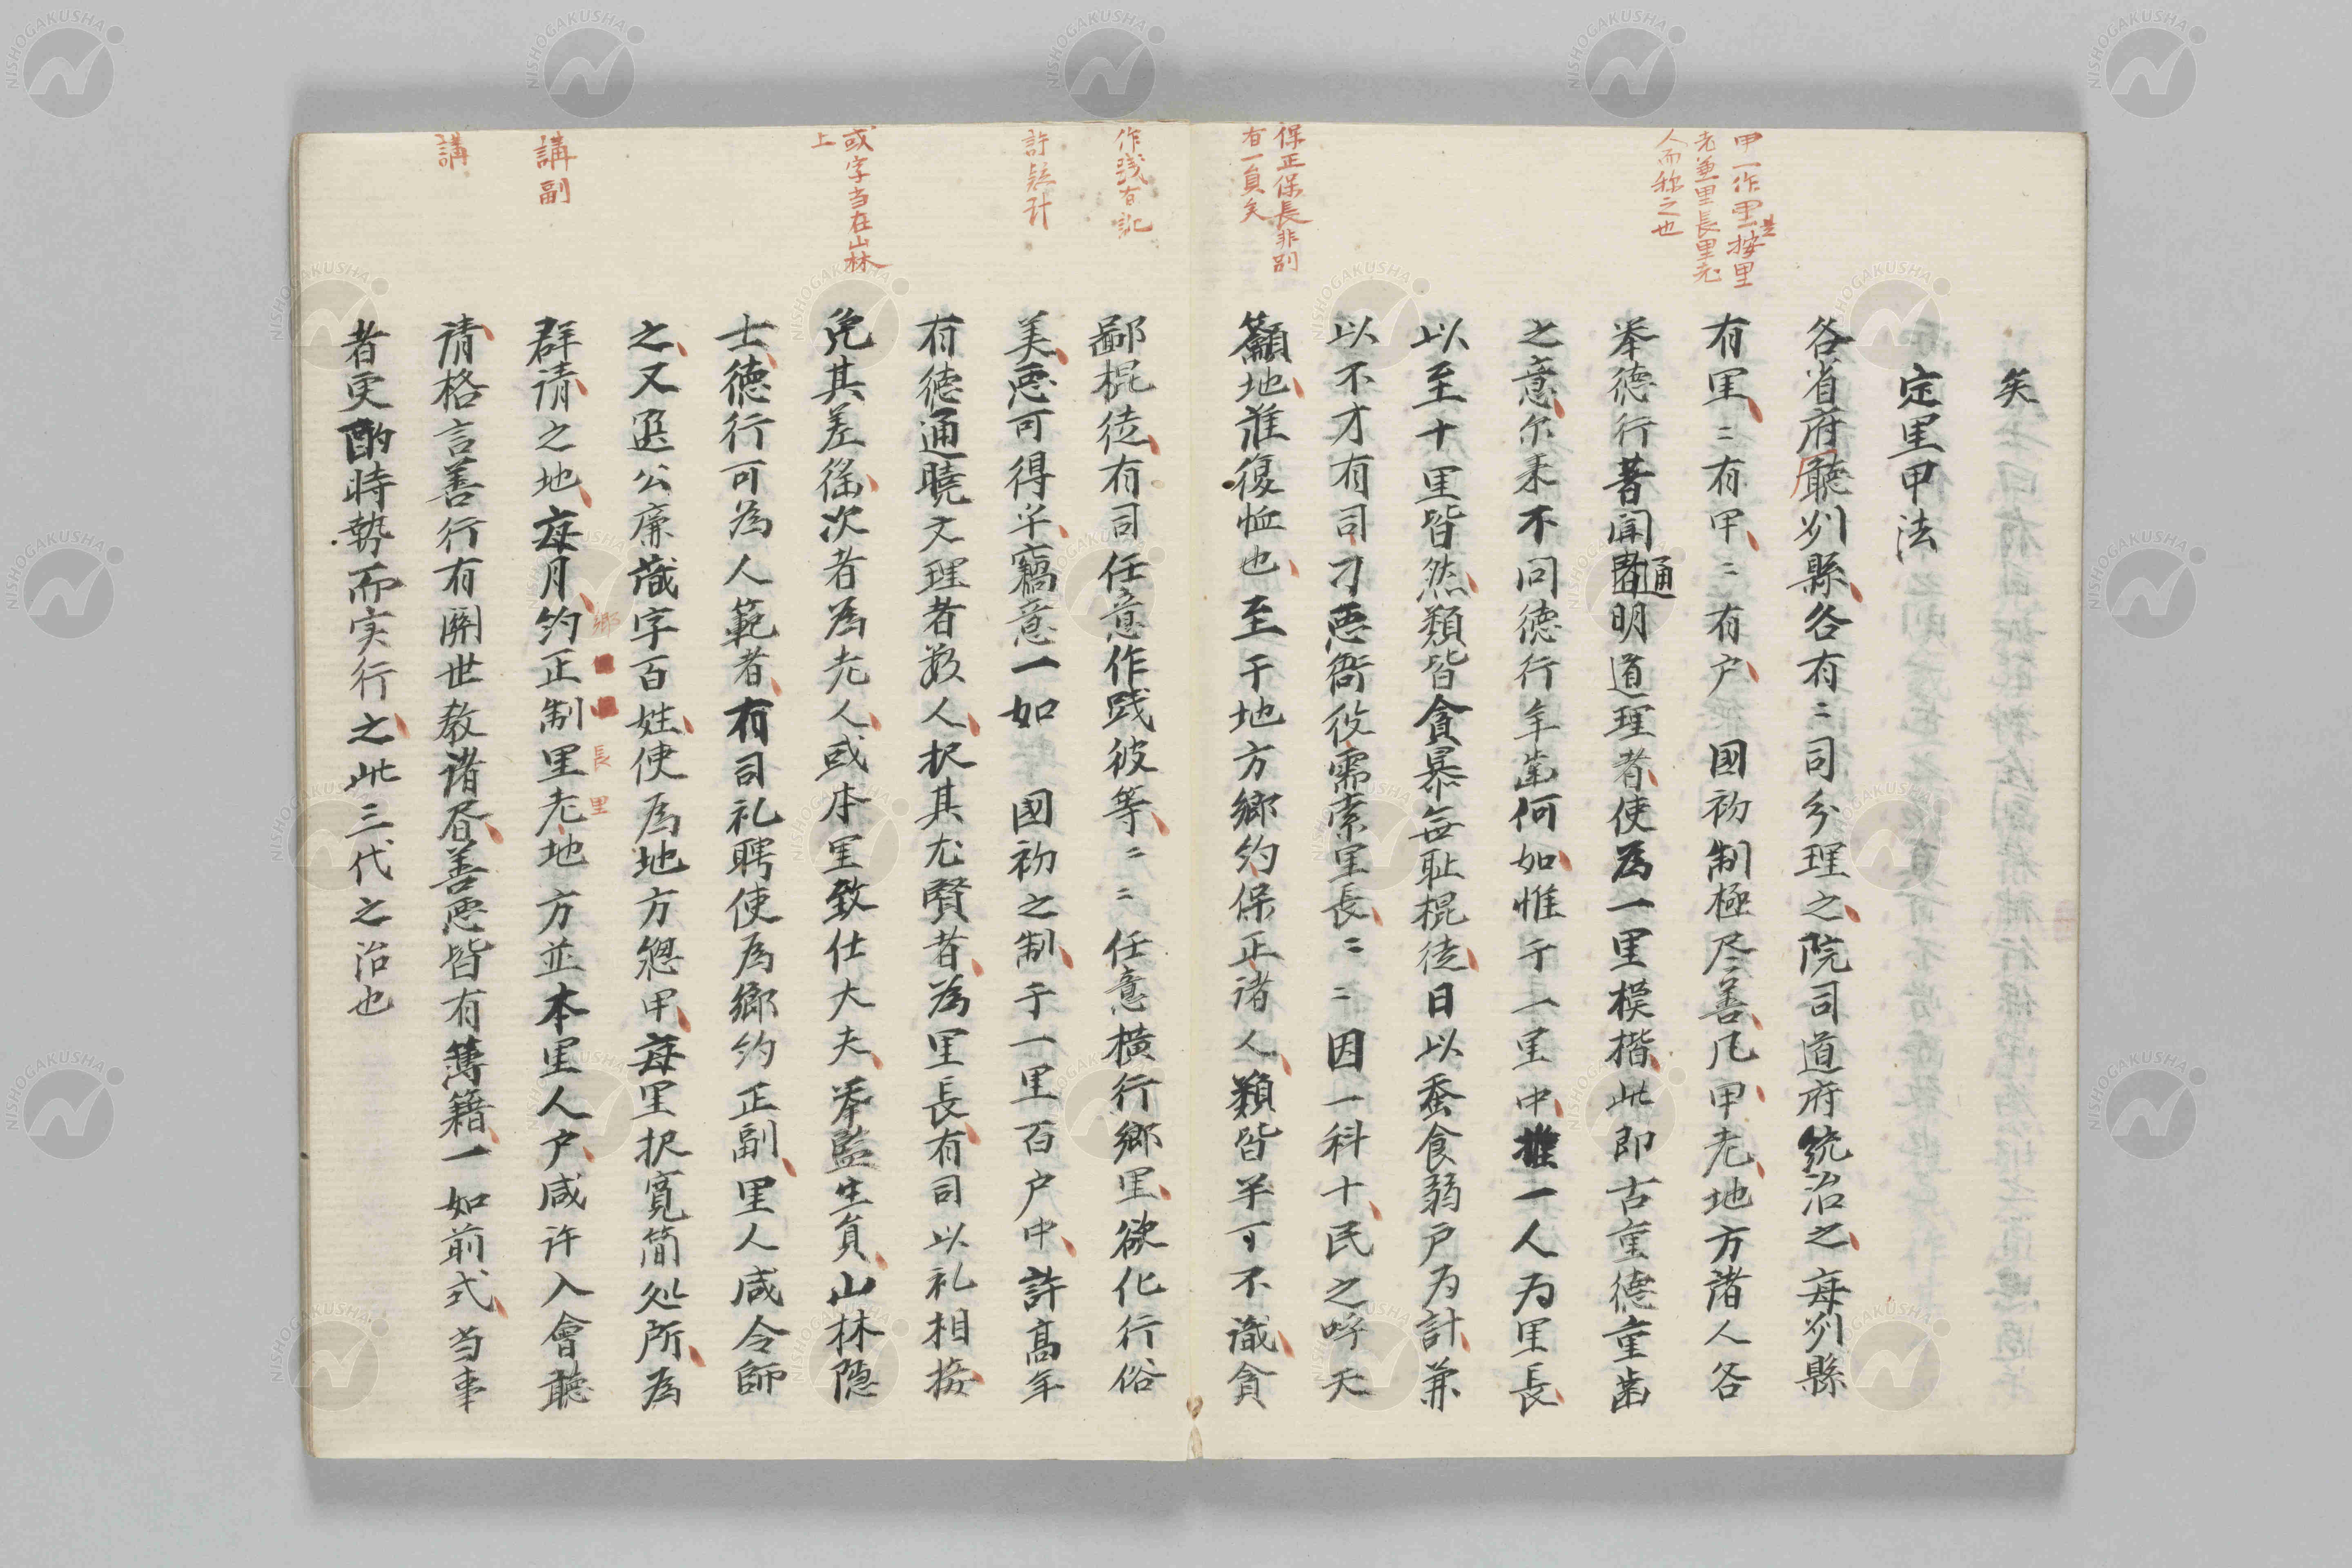 矣
定里甲法
各省府廳刕縣各有二司分理之院司道府統治之每刕縣
有里二有甲二有户 國初制極尽善凡甲老地方諸人各
举德行著聞通明道理者使為一里模楷此即古重德重歯
之意尓来不问德行年歯何如惟于一里中推一人为里長
以至十里皆然類皆貪暴無耻棍徒日以蚕食弱户为計兼
以不才有司刁悪衙役需索里長二二因一科十民之呼天
籲地誰復恤也至于地方郷约保正诸人類皆羊可不識貪
鄙棍徒有司任意作践彼等二二任意横行郷里欲化行俗
美悪可得乎竊意一如 國初之制于一里百户中許高年
有徳通曉文理者数人択其尤賢者為里長有司以礼相接
免其差徭次者為老人或本里致仕大夫举監生負山林隠
士徳行可為人範者有司礼聘使為郷约正副里人咸令師
之又选公廉識字百姓使為地方總甲每里択寛简处所為
群请之地每月约正制里老地方並本里人户咸许入會聽
请格言善行有関世教诸昏善悪皆有簿籍一如前式当事
者更酌時勢而实行之此三代之治也
甲一作里是按里
老兼里長里老
人而称之也
保正保長非别
有一負矣
作践有記
許疑计
或字当在山林
上
講副
講
郷
長里
NISHOGAKUSHA